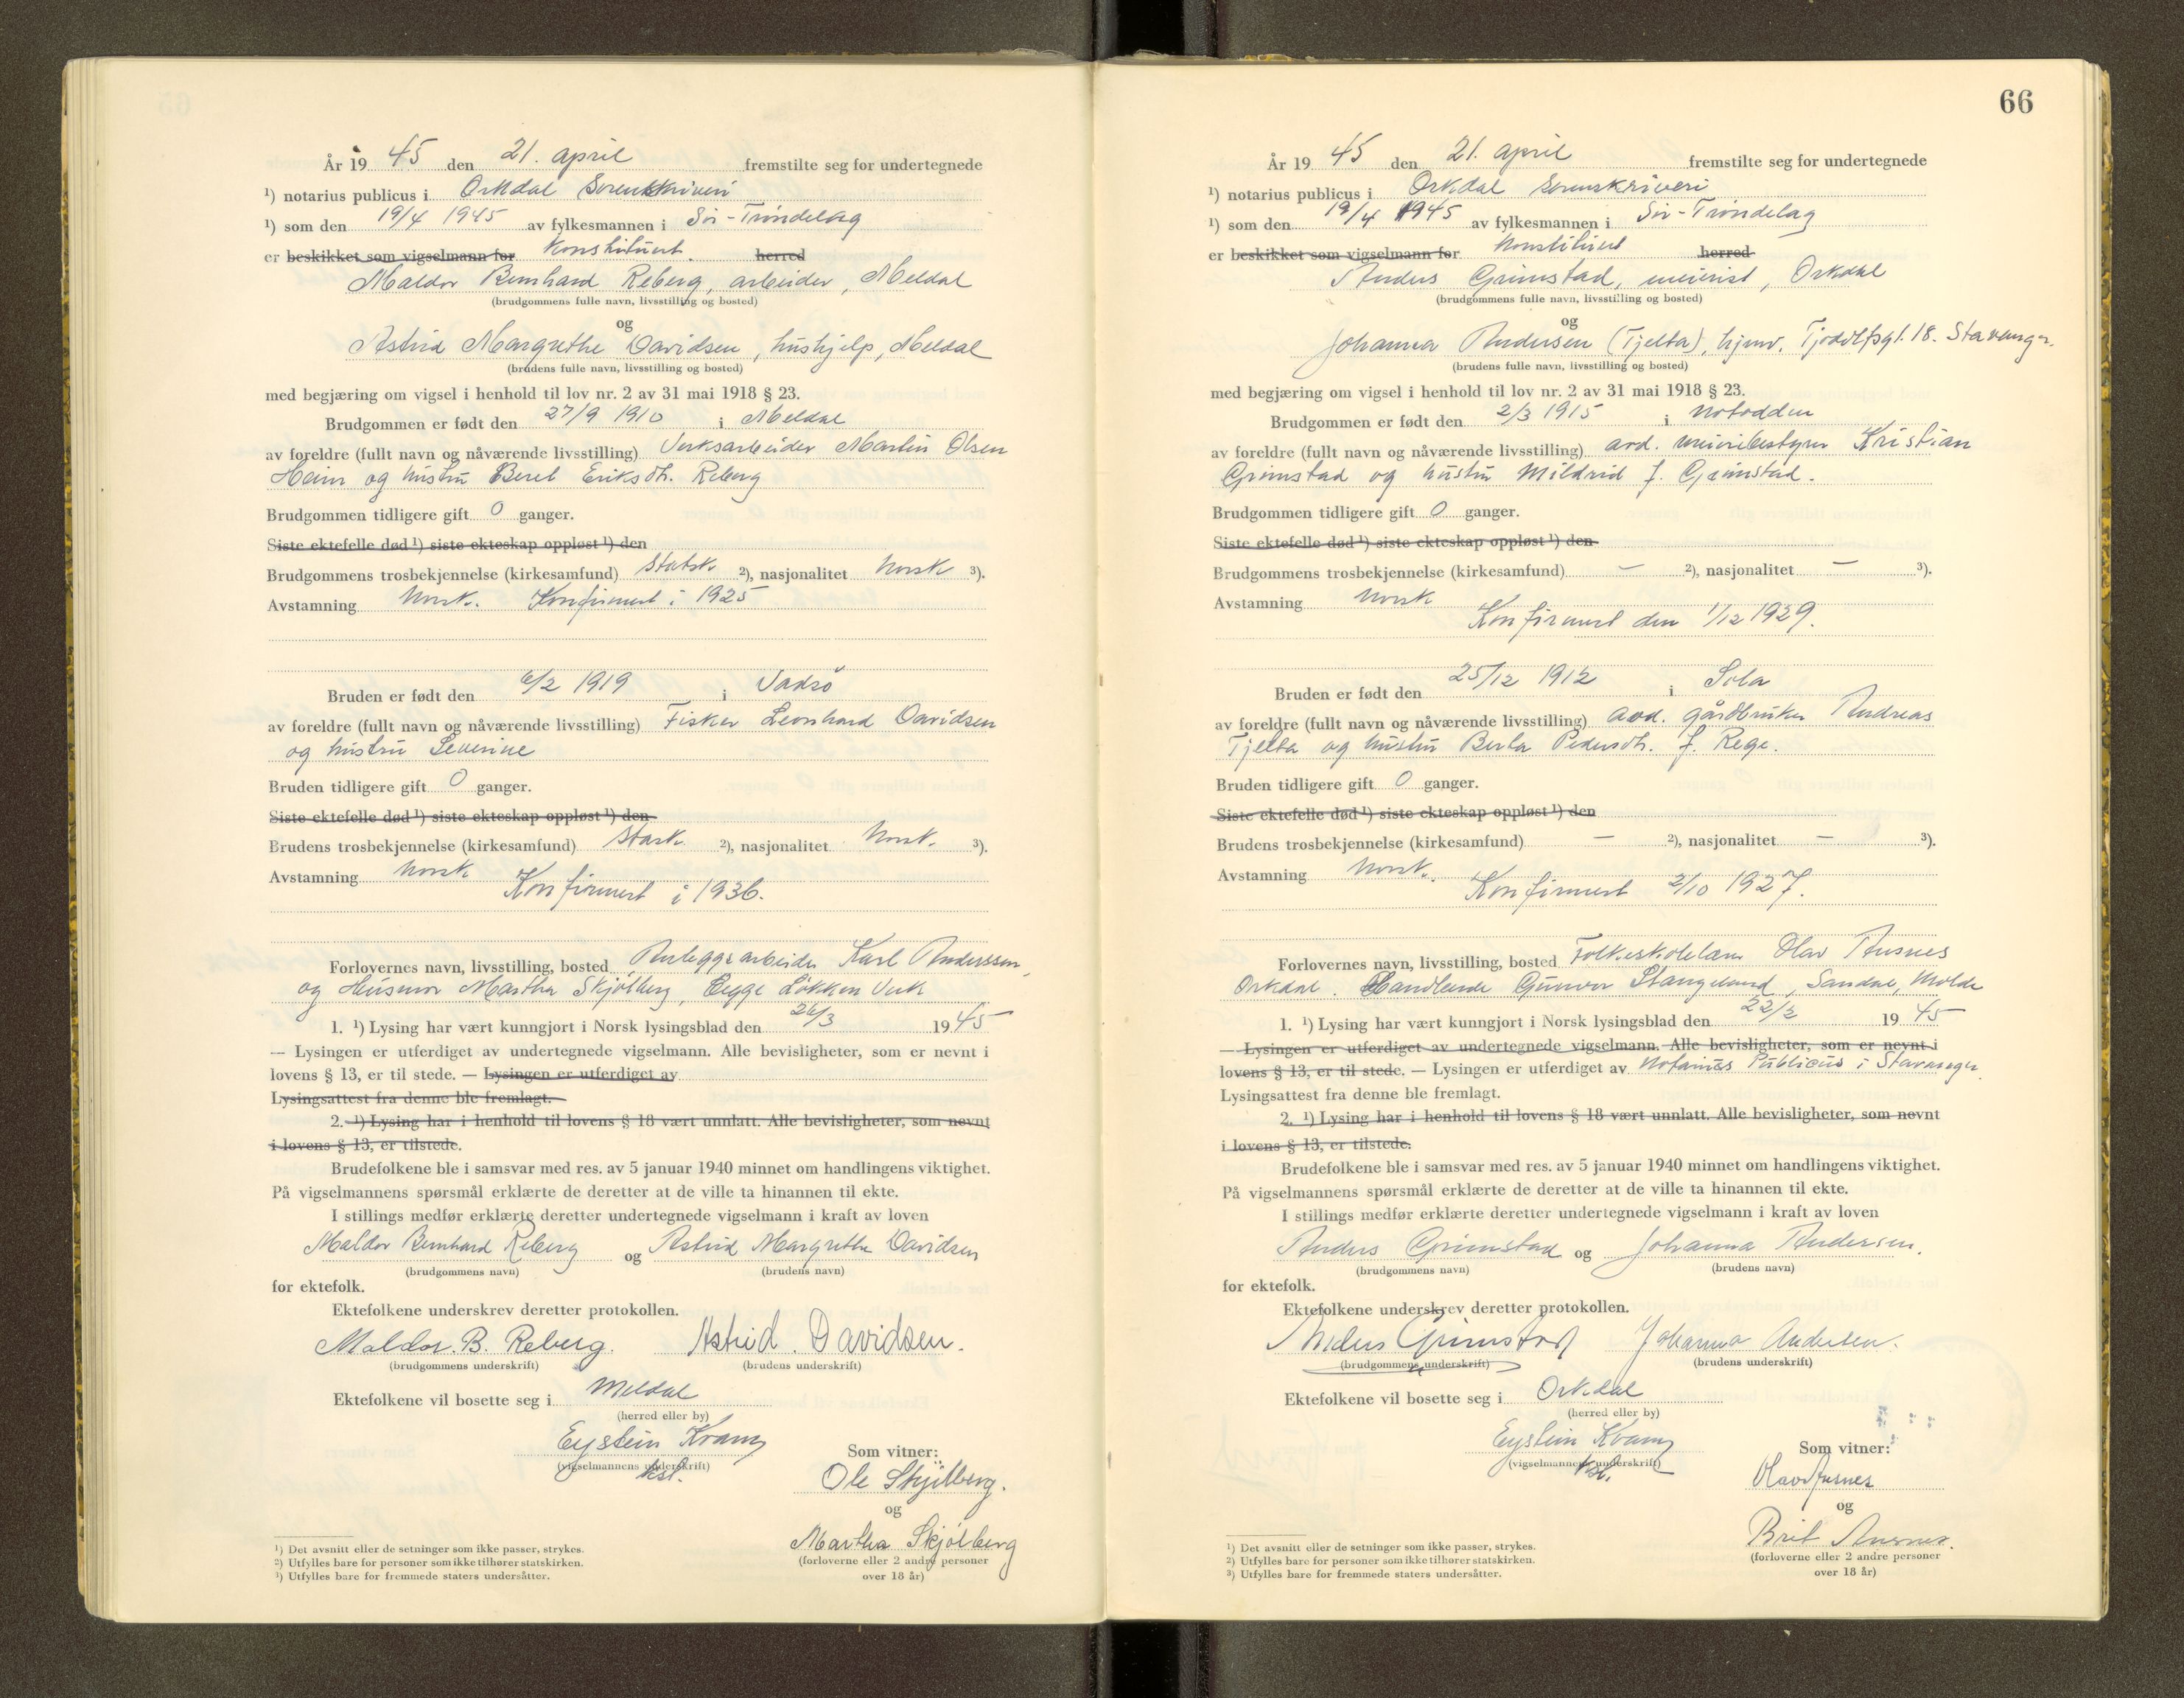 År 1945 den 21. april fremstilte seg for undertegnede
¹) notarius publicus i Orkdal Sorenskriveri
¹) som den 19/4 1945 av fylkesmannen i Sör-Tröndelag
er beskikket som vigselmann for konstituert. herred
Maldor Bernhard Reberg, arbeider, Meldal
(brudgommens fulle navn, livsstilling og bosted)
og
Astrid Margrethe Davidsen, hushjelp, Meldal
(brudens fulle navn, livsstilling og bosted)
med begjæring om vigsel i henhold til lov nr. 2 av 31 mai 1918 § 23.
Brudgommen er født den 27/9 1910 i Meldal
av foreldre (fullt navn og nåværende livsstilling) Verksarbeider Martin Olsen
og hustru Beret Eriksdtr. Reberg
Brudgommen tidligere gift 0 ganger.
Siste ektefelle død ¹) siste ekteskap oppløst ¹) den
Brudgommens trosbekjennelse (kirkesamfund) Statsk ²), nasjonalitet Norsk ³).
Avstamning Norsk. Konfirmert i 1925
Bruden er født den 6/2 1919 i Vadsö
av foreldre (fullt navn og nåværende livsstilling) Fisker Leonhard Davidsen
og hustru Severine
Bruden tidligere gift 0 ganger.
Siste ektefelle død ¹) siste ekteskap oppløst ¹) den
Brudens trosbekjennelse (kirkesamfund) Statsk ²), nasjonalitet Norsk. ³).
Avstamning Norsk
Konfirmert i 1936.
Forlovernes navn, livsstilling, bosted Anleggsarbeider Karl Anderssen,
og Husmor Martha Skjölberg, Begge Lökken Verk
1. ¹) Lysing har vært kunngjort i Norsk lysingsblad den 26/3 1945
— Lysingen er utferdiget av undertegnede vigselmann. Alle bevisligheter, som er nevnt i
lovens § 13, er til stede. — Lysingen er utferdiget av
Lysingsattest fra denne ble fremlagt.
2. ¹) Lysing har i henhold til lovens § 18 vært unnlatt. Alle bevisligheter, som nevnt
i lovens § 13, er tilstede.
Brudefolkene ble i samsvar med res. av 5 januar 1940 minnet om handlingens viktighet.
På vigselmannens spørsmål erklærte de deretter at de ville ta hinannen til ekte.
I stillings medfør erklærte deretter undertegnede vigselmann i kraft av loven
Maldor Bernhard Reberg og Astrid Margrethe Davidsen
(brudgommens navn) (brudens navn)
for ektefolk.
Ektefolkene underskrev deretter protokollen.
Maldor. B. Reberg. Astrid. Davidsen.
(brudgommens underskrift) (brudens underskrift)
Ektefolkene vil bosette seg i Meldal
(herred eller by)
Eystein Kvam
(vigselmannens underskrift)
kst.
Som vitner:
Ole Skjölberg.
og
Martha Skjölberg
(forloverne eller 2 andre personer
over 18 år)
¹) Det avsnitt eller de setninger som ikke passer, strykes.
²) Utfylles bare for personer som ikke tilhører statskirken.
³) Utfylles bare for fremmede staters undersåtter.
66
År 1945 den 21. april fremstilte seg for undertegnede
¹) notarius publicus i Orkdal Sorenskriveri
¹) som den 19/4 1945 av fylkesmannen i Sör-Tröndelag
er beskikket som vigselmann for konstituert herred
Anders Grimstad, meierist, Orkdal
(brudgommens fulle navn, livsstilling og bosted)
og
Johanna Andersen (Tjelta), hjmv. Tjodolfsgt. 18. Stavanger.
(brudens fulle navn, livsstilling og bosted)
med begjæring om vigsel i henhold til lov nr. 2 av 31 mai 1918 § 23.
Brudgommen er født den 2/3 1915 i Notodden
av foreldre (fullt navn og nåværende livsstilling) avd. meieribestyrer Kristian
Grimstad og hustru Mildrid f. Grimstad.
Brudgommen tidligere gift 0 ganger.
Siste ektefelle død ¹) siste ekteskap oppløst ¹) den
Brudgommens trosbekjennelse (kirkesamfund) — ²), nasjonalitet — ³).
Avstamning Norsk
Konfirmert den 1/12 1929.
Bruden er født den 25/12 1912 i Sola
av foreldre (fullt navn og nåværende livsstilling) avd. gårdbruker Andreas
Tjelta og hustru Berta Pedersdtr. f. Rege.
Bruden tidligere gift 0 ganger.
Siste ektefelle død ¹) siste ekteskap oppløst ¹) den
Brudens trosbekjennelse (kirkesamfund) — ²), nasjonalitet — ³).
Avstamning Norsk.
Konfirmert 2/10 1927.
Forlovernes navn, livsstilling, bosted Folkeskolelærer Olav Ausnes
Orkdal. Handlende Gunvor Stangeland, Sandnes, Molde
1. ¹) Lysing har vært kunngjort i Norsk lysingsblad den 22/3 1945
— Lysingen er utferdiget av undertegnede vigselmann. Alle bevisligheter, som er nevnt i
lovens § 13, er til stede. — Lysingen er utferdiget av Notarius Publicus i Stavanger
Lysingsattest fra denne ble fremlagt.
2. ¹) Lysing har i henhold til lovens § 18 vært unnlatt. Alle bevisligheter, som nevnt
i lovens § 13, er tilstede.
Brudefolkene ble i samsvar med res. av 5 januar 1940 minnet om handlingens viktighet.
På vigselmannens spørsmål erklærte de deretter at de ville ta hinannen til ekte.
I stillings medfør erklærte deretter undertegnede vigselmann i kraft av loven
Anders Grimstad og Johanna Andersen.
(brudgommens navn) (brudens navn)
for ektefolk.
Ektefolkene underskrev deretter protokollen.
Anders Grimstad Johanna Andersen.
(brudgommens underskrift) (brudens underskrift)
Ektefolkene vil bosette seg i Orkdal
(herred eller by)
Eystein Kvam
(vigselmannens underskrift)
kst.
Som vitner:
Olav Ausnes
og
Brit Ausnes.
(forloverne eller 2 andre personer
over 18 år)
¹) Det avsnitt eller de setninger som ikke passer, strykes.
²) Utfylles bare for personer som ikke tilhører statskirken.
³) Utfylles bare for fremmede staters undersåtter.